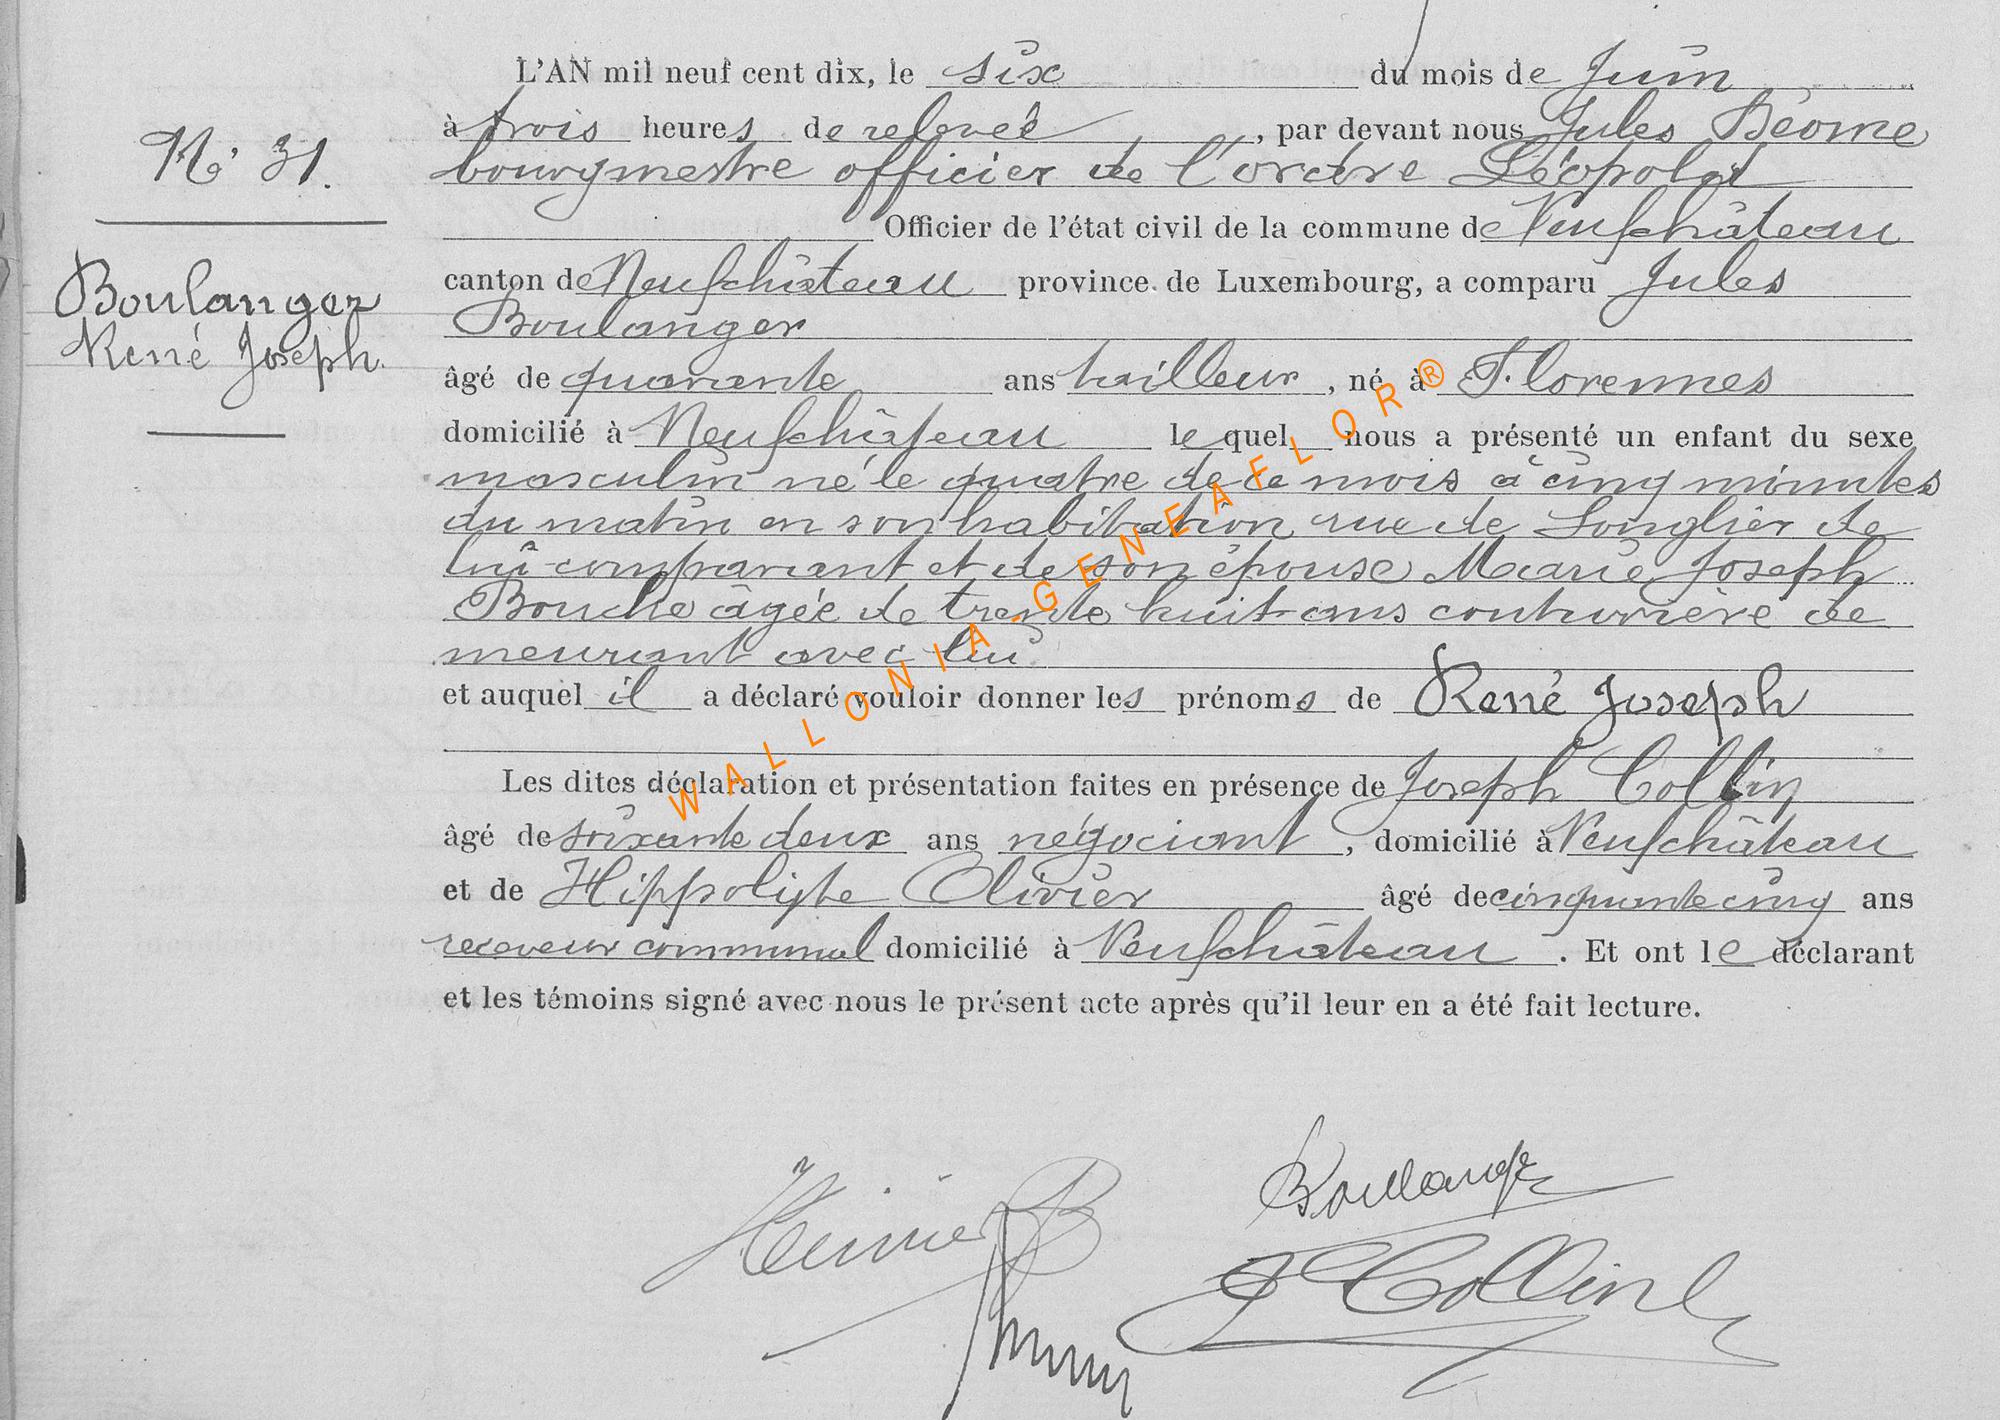 L'AN mil neuf cent dix, le six du mois de Juin
à trois heures de relevée, par devant nous Jules Béorne
N° 31.
bourgmestre officier de l'ordre Léopold
Officier de l'état civil de la commune de Neufchâteau
Boulanger
René Joseph.
canton de Neufchâteau province de Luxembourg, a comparu Jules
Boulanger
âgé de quarante ans tailleur, né à Florennes
domicilié à Neufchâteau lequel nous a présenté un enfant du sexe
masculin né le quatre de ce mois à cinq minutes
du matin en son habitation rue de Longlier de
lui comparant et de son épouse Marie Joseph
Bouche âgée de trente huit ans couturière de
meurant avec lui
et auquel il a déclaré vouloir donner les prénoms de René Joseph
Les dites déclaration et présentation faites en présence de Joseph Collin
âgé de soixante deux ans négociant, domicilié à Neufchâteau
et de Hippolyte Olivier âgé de cinquante cinq ans
receveur communal domicilié à Neufchâteau. Et ont le déclarant
et les témoins signé avec nous le présent acte après qu'il leur en a été fait lecture.
WALLONIA-GENEAFLOR®
Boulanger
J Collin